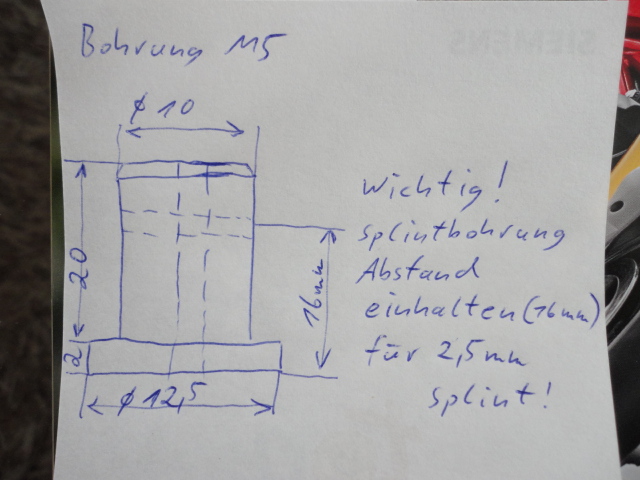 Bohrung M5
ϕ 10
20
2
16mm
ϕ 12,5
Wichtig!
Splintbohrung
Abstand
einhalten (16mm)
für 2,5mm
Splint!
SIEMENS